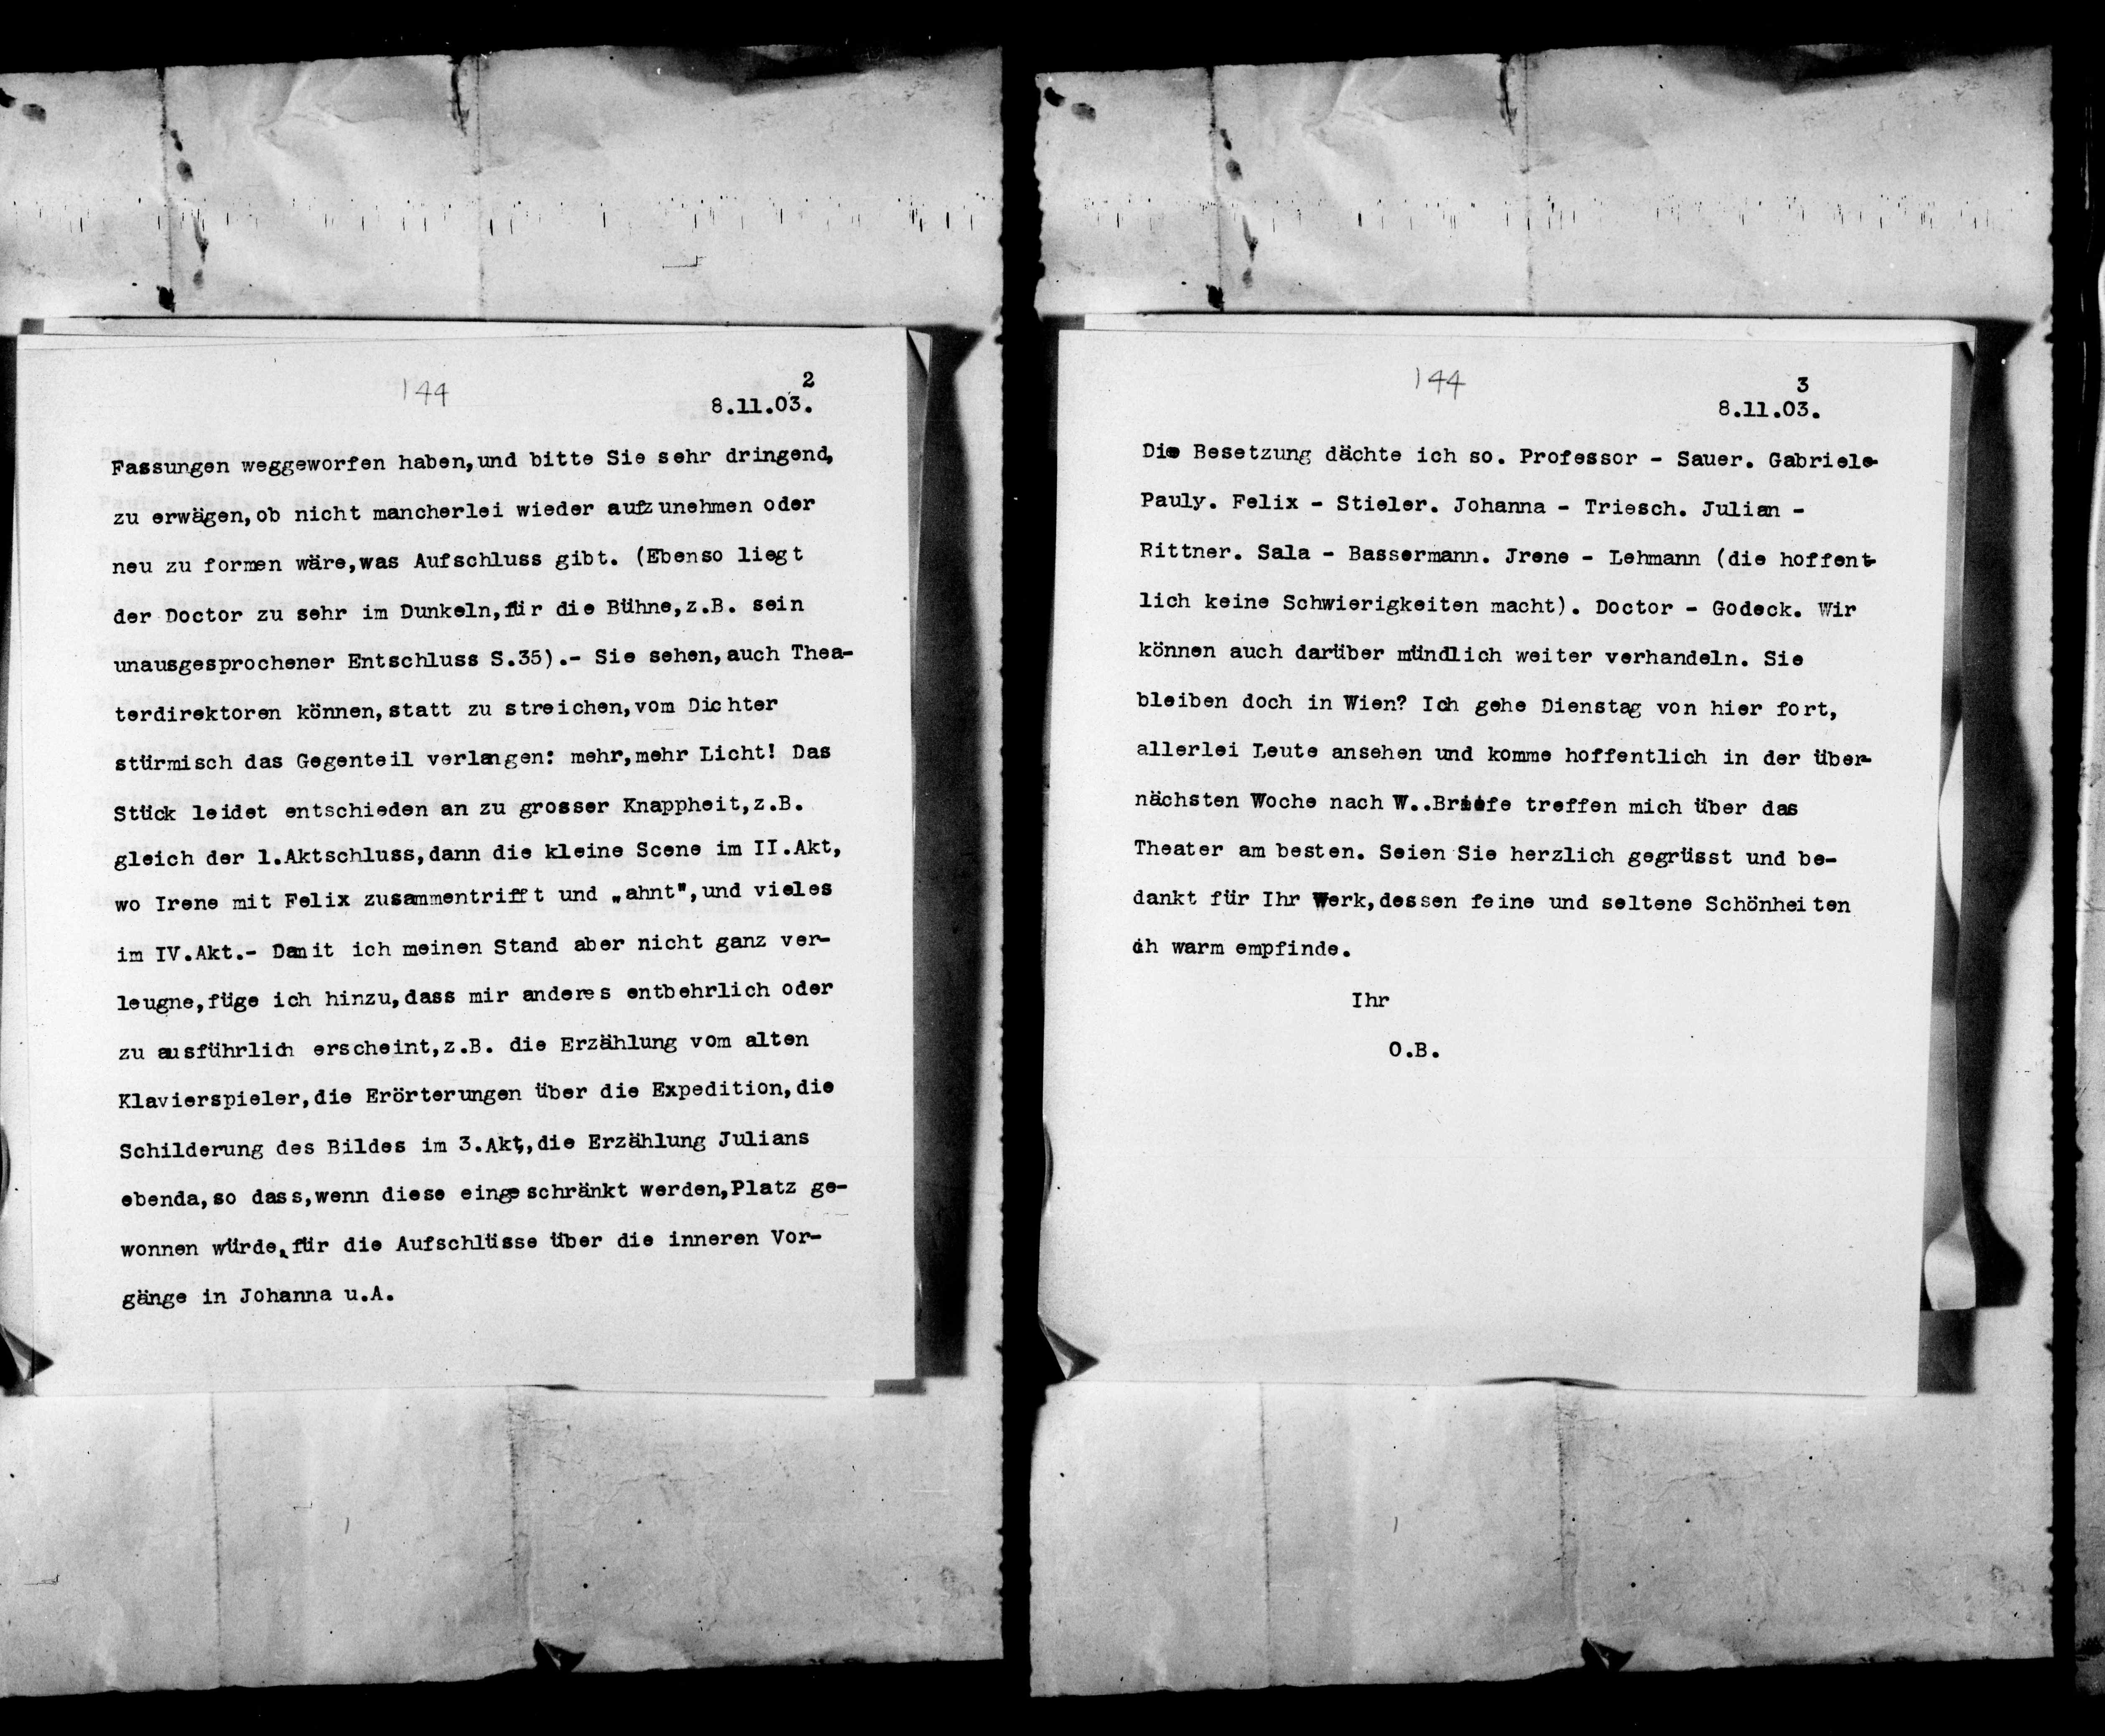 144
2
8.11.03.
Fassungen weggeworfen haben,und bitte Sie sehr dringend,
zu erwägen,ob nicht mancherlei wieder aufzunehmen oder
neu zu formen wäre,was Aufschluss gibt. (Ebenso liegt
der Doctor zu sehr im Dunkeln,für die Bühne,z.B. sein
unausgesprochener Entschluss S.35).- Sie sehen,auch Thea-
terdirektoren können,statt zu streichen,vom Dichter
stürmisch das Gegenteil verlangen: mehr,mehr Licht! Das
Stück leidet entschieden an zu grosser Knappheit,z.B.
gleich der 1.Aktschluss,dann die kleine Scene im II.Akt,
wo Irene mit Felix zusammentrifft und „ahnt",und vieles
im IV.Akt.- Damit ich meinen Stand aber nicht ganz ver-
leugne,füge ich hinzu,dass mir anderes entbehrlich oder
zu ausführlich erscheint,z.B. die Erzählung vom alten
Klavierspieler,die Erörterungen über die Expedition,die
Schilderung des Bildes im 3.Akt,die Erzählung Julians
ebenda,so dass,wenn diese eingeschränkt werden,Platz ge-
wonnen würde,für die Aufschlüsse über die inneren Vor-
gänge in Johanna u.A.
144
3
8.11.03.
Die Besetzung dächte ich so. Professor - Sauer. Gabriele-
Pauly. Felix - Stieler. Johanna - Triesch. Julian -
Rittner. Sala - Bassermann. Jrene - Lehmann (die hoffent-
lich keine Schwierigkeiten macht). Doctor - Godeck. Wir
können auch darüber mündlich weiter verhandeln. Sie
bleiben doch in Wien? Ich gehe Dienstag von hier fort,
allerlei Leute ansehen und komme hoffentlich in der über-
nächsten Woche nach W..Briefe treffen mich über das
Theater am besten. Seien Sie herzlich gegrüsst und be-
dankt für Ihr Werk,dessen feine und seltene Schönheiten
ich warm empfinde.
Ihr
O.B.